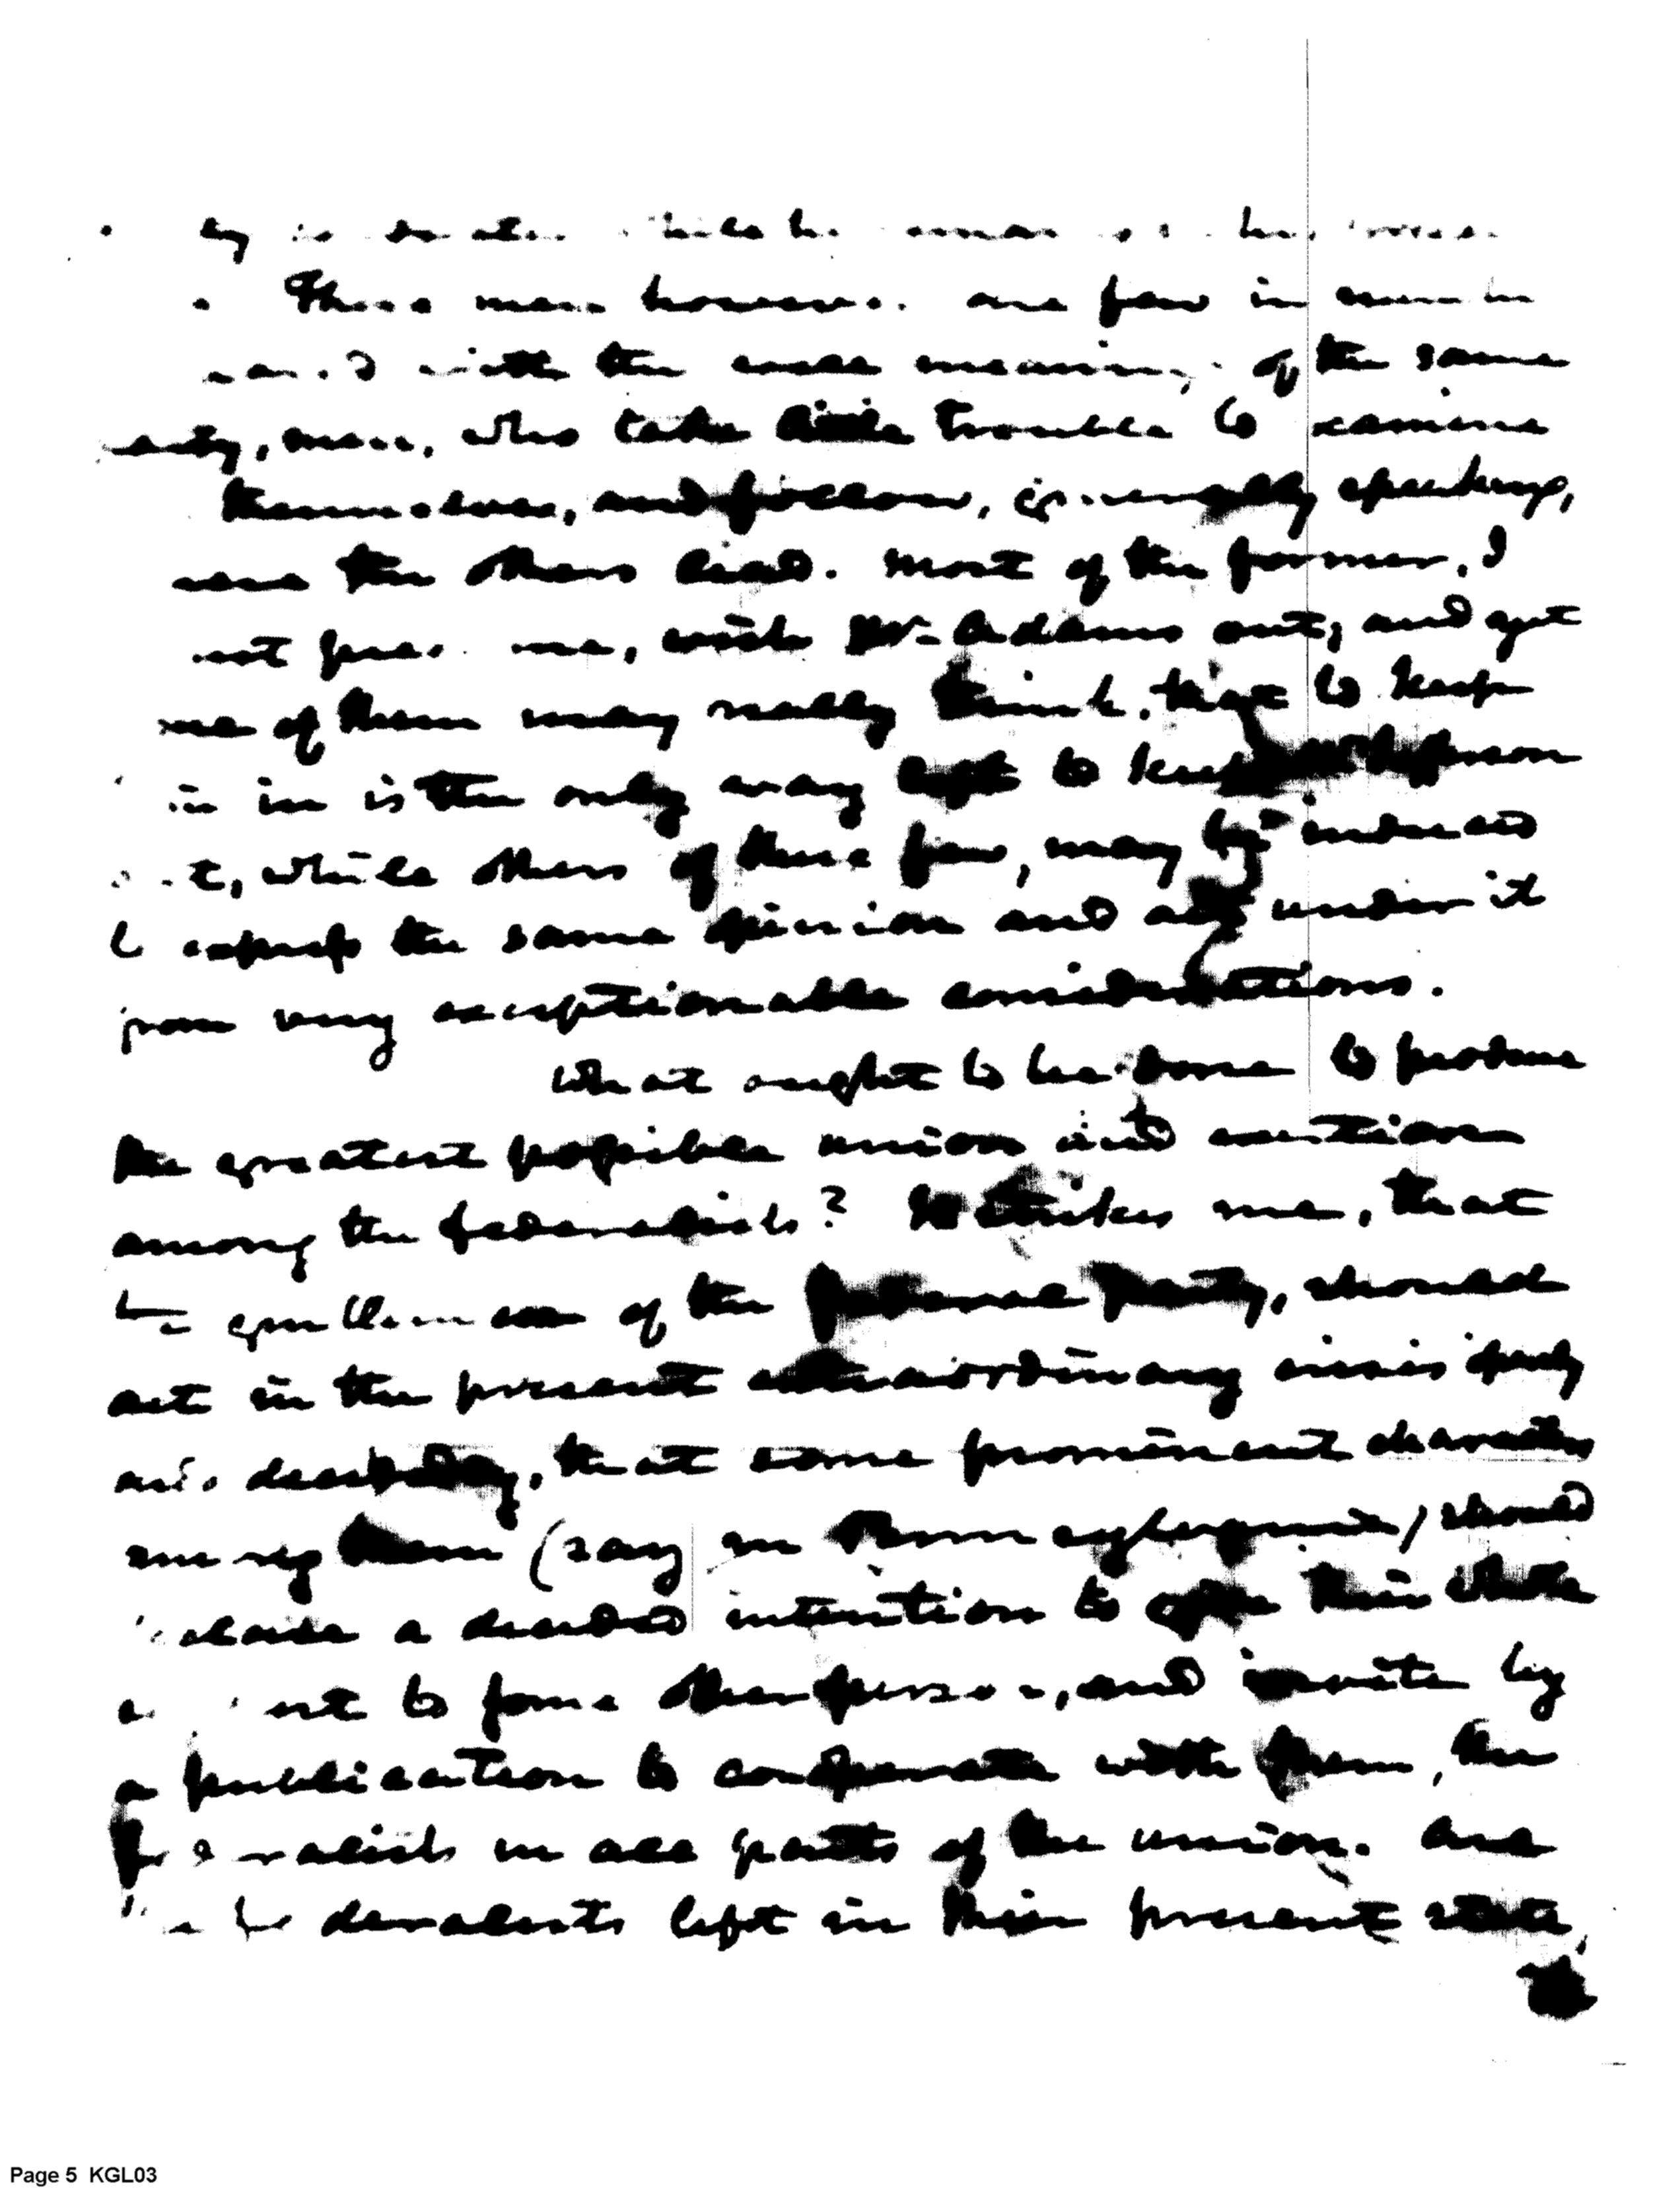 by
These men however are few in
with the well meaning of the same
, men, who take little trouble to examine
themselves, and follow, generally speaking,
where the others lead. Most of the former, I
me, wish Mr Adams out; and yet
some of them may really think, that to keep
him in is the only way left to keep Mr Jefferson
out, while others of these few, may be induced
to express the same opinion and act under it
from very exceptionable considerations.
What ought to be done to produce
the greatest possible union and exertion
among the federalists? It strikes me, that
the gentlemen of the federal party, should
act in the present extraordinary crisis openly
and decidedly, that some prominent characters
among them (say in Pennsylvania) should
declare a decided intention to offer their whole
to some other person, and invite by
a publication to cooperate with them, the
federalists in all parts of the union. And
the federalists left in their present state,
Page 5 KGL03